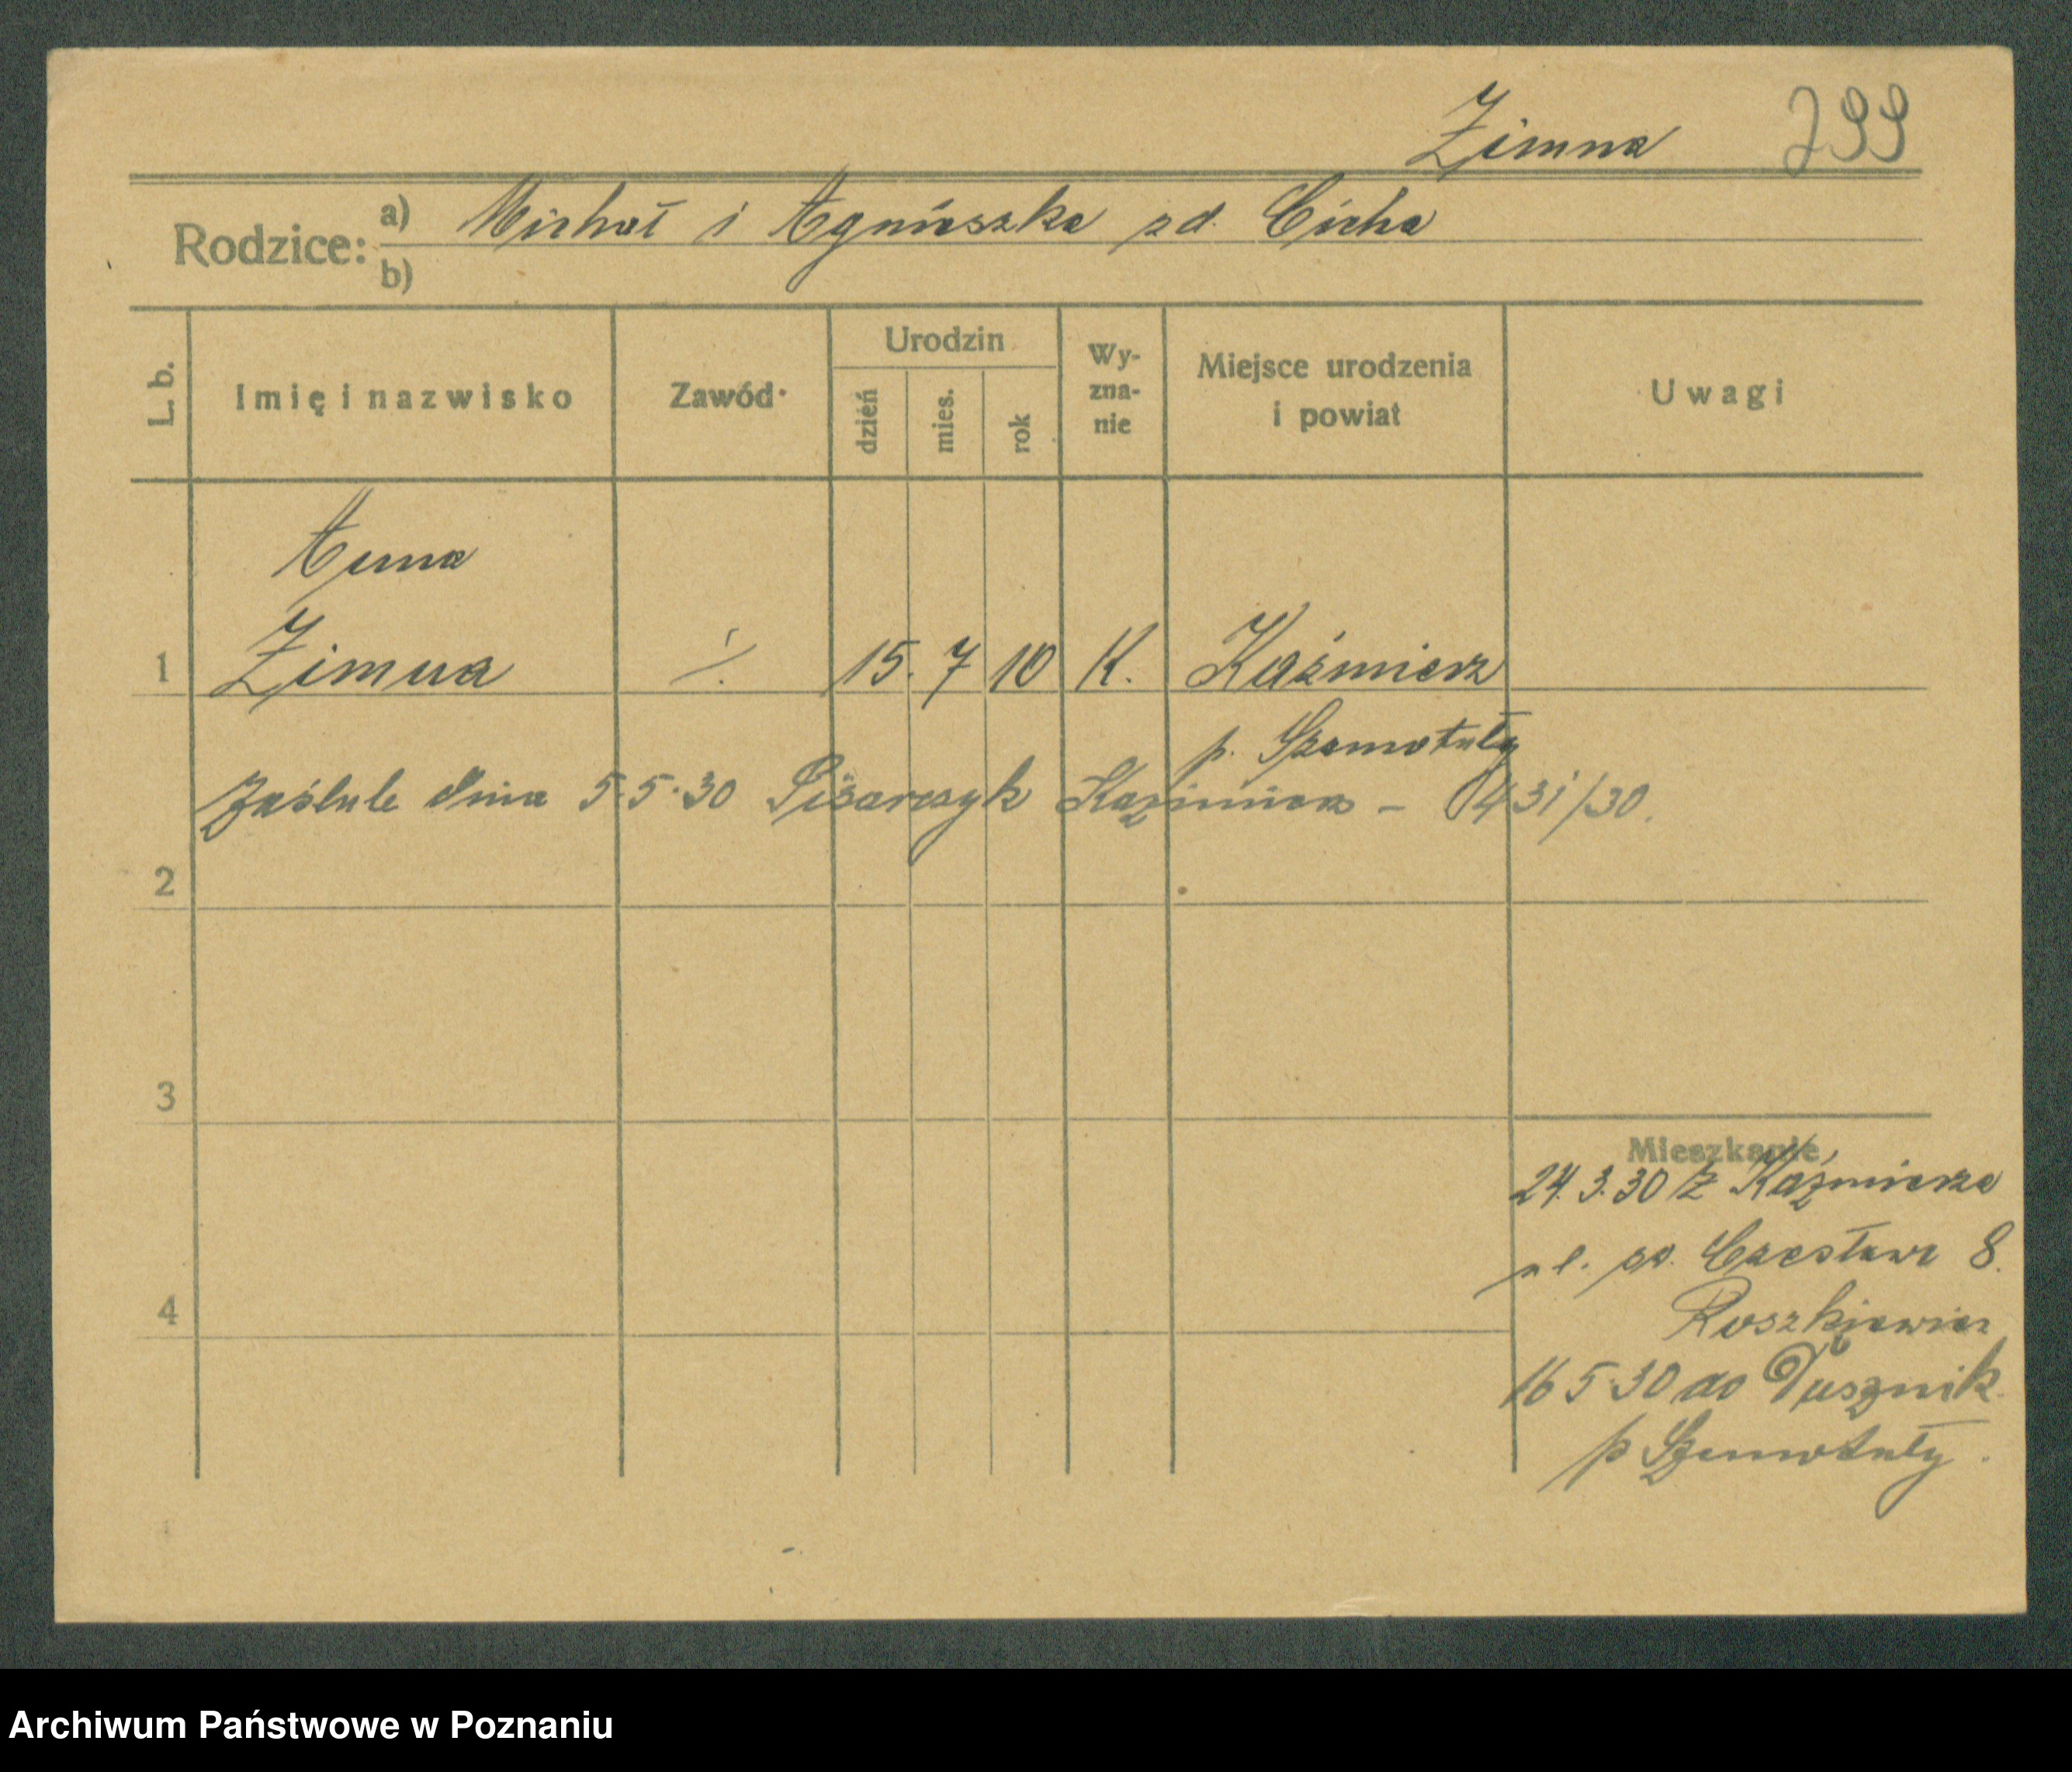 Zimna 299
Rodzice: a) Michał i Agnieszka zd. Cicha
b)
L. b. Imię i nazwisko Zawód Urodzin dzień mies. rok Wyznanie Miejsce urodzenia i powiat Uwagi
Anna
1 Zimna ./. 15. 7 10 K. Kaźmierz
p. Szamotuły
zaślub. dnia 5.5.30 Pisarczyk Kazimierz - 431/30.
2
3
Mieszkanie
24.3.30 z Kaźmierza
ul. św. Czesława 8.
4 Roszkiewicz
16 5 30 do Dusznik
p Szamotuły.
Archiwum Państwowe w Poznaniu